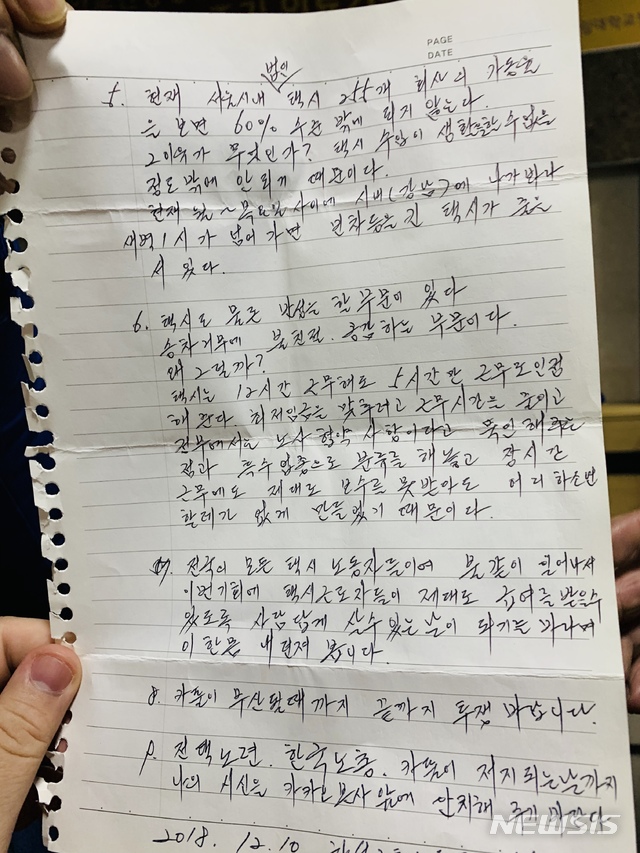 PAGE
DATE
법인
5. 현재 서울시내 택시 255개 회사의 가동률
을 보면 60% 수준 밖에 되지 않는다.
그 이유가 무엇인가? 택시 수입이 생활을 할 수 없을
정도 밖에 안되기 때문이다.
현재 월~목요일 사이에 시내(강남)에 나가 바라
새벽 1시가 넘어가면 빈차등을 킨 택시가 줄을
서 있다.
6. 택시도 물론 반성을 할 부문이 있다
승차거부에 불친절. 공감하는 부문이다.
왜 그럴까?
택시는 12시간 근무해도 5시간만 근무로 인정
해 준다. 최저임금을 맞추려고 근무시간을 줄이고
정부에서는 노사 협약 사항이라고 묵인해주는
점과 특수업종으로 분류를 해놓고 장시간
근무에도 제대로 보수를 못받아도 어디 하소연
할데가 없게 만들었기 때문이다.
7. 전국의 모든 택시 노동자들이여 불같이 일어나서
이번기회에 택시근로자들이 제대로 급여를 받을수
있도록 사람답게 살수 있는 날이 되기를 바라며
이 한몸 내 던져 봅니다.
8. 카풀이 무산될때까지 끝까지 투쟁 바랍니다.
9. 전택노련. 한국노총. 카풀이 저지되는 날까지
나의 시신을 카카오 본사 앞에 안치해 주기 바란다
2018. 12. 10
NEWSIS